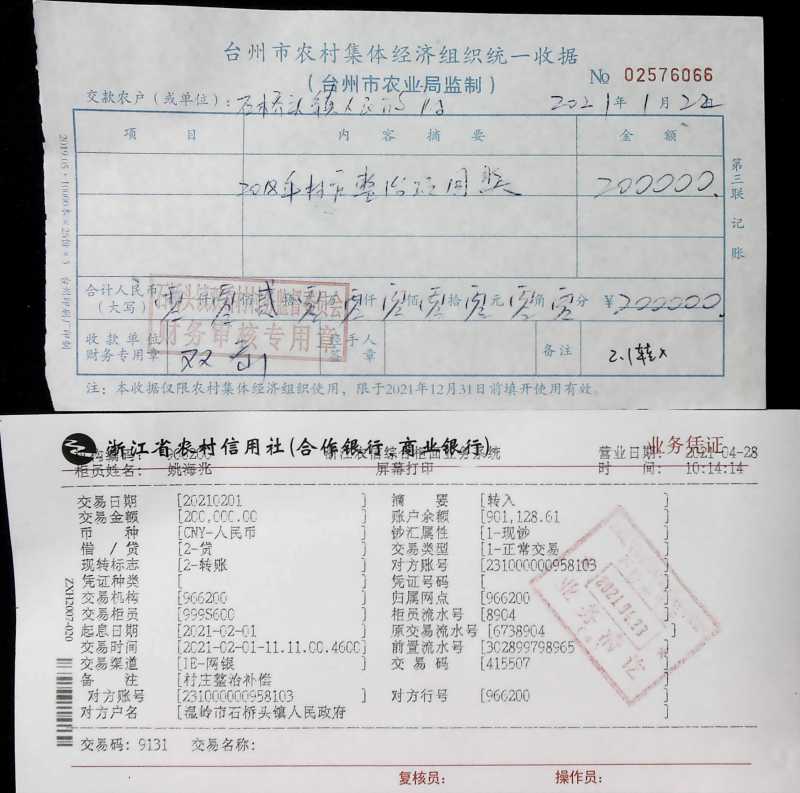 台州市农村集体经济组织统一收据
(台州市农业局监制)
№ 02576066
交款农户（或单位）：石桥头镇人民政府 2021年1月22日
项 目 内 容 摘 要 金 额
2018年村庄整治项目奖 200000.
合计人民币 零仟零佰贰拾零万零仟零佰零拾零元零角零分 ¥200000.
(大写)
财务审核专用章
收款单位 经手人 备注 2.1转入
财务专用章 签章
注：本收据仅限农村集体经济组织使用，限于2021年12月31日前填开使用有效。
第三联 记账
浙江省农村信用社(合作银行、商业银行) 业务凭证
营业日期: 2021-04-28
柜员姓名: 姚海兆 屏幕打印 时 间: 10:14:14
交易日期 [20210201 ] 摘 要 [转入 ]
交易金额 [200,000.00 ] 账户余额 [901,128.61 ]
币 种 [CNY-人民币 ] 钞汇属性 [1-现钞 ]
借 / 贷 [2-贷 ] 交易类型 [1-正常交易 ]
现转标志 [2-转账 ] 对方账号 [231000000958103
凭证种类 [ ] 凭证号码 [
交易机构 [966200 ] 归属网点 [966200
交易柜员 [999S600 ] 柜员流水号 [8904
起息日期 [2021-02-01 ] 原交易流水号 [6738904 ]
交易时间 [2021-02-01-11.11.00.4600] 前置流水号 [302899798965
交易渠道 [IE-网银 ] 交 易 码 [415507
备 注 [村庄整治补偿 ]
对方账号 [231000000958103 ] 对方行号 [966200 ]
对方户名 [温岭市石桥头镇人民政府 ]
交易码: 9131 交易名称:
复核员: 操作员:
ZXH2007-020